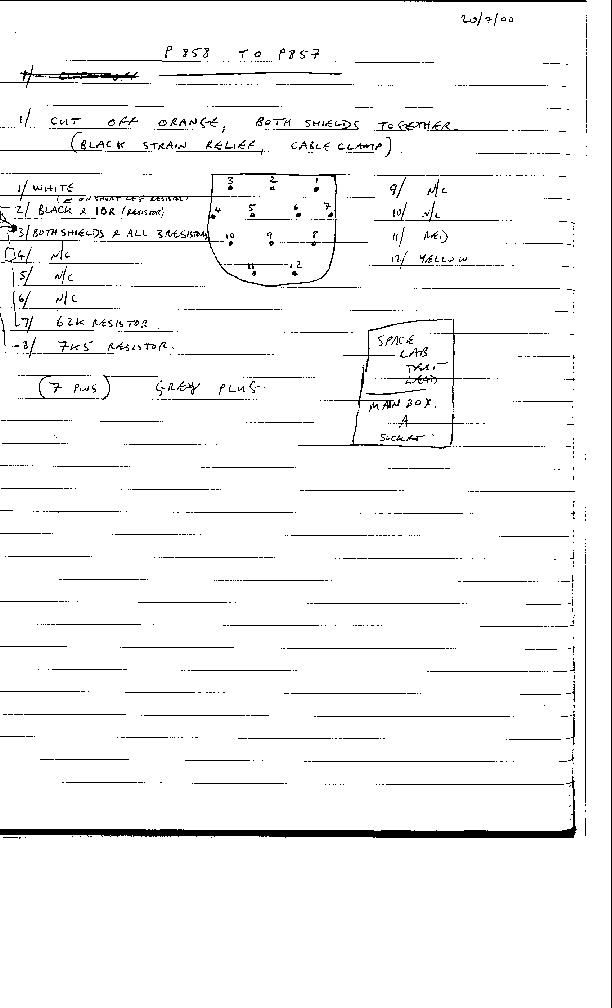 20/7/00
P858 TO P857
1/ CUT OFF ORANGE, BOTH SHIELDS TOGETHER
(BLACK STRAIN RELIEF, CABLE CLAMP).
1/ WHITE
2/ BLACK & 10R (RESISTOR)
3/ BOTH SHIELDS & ALL 3 RESISTORS
4/ N/C
5/ N/C
6/ N/C
7/ 62K RESISTOR
8/ 7K5 RESISTOR.
(7 PINS) GREY PLUG
3 2 1
4 5 6 7
10 9 8
11 12
9/ N/C
10/ N/C
11/ RED
12/ YELLOW
SPACE
LAB
LEAD
MAIN BOX.
A
SOCKET